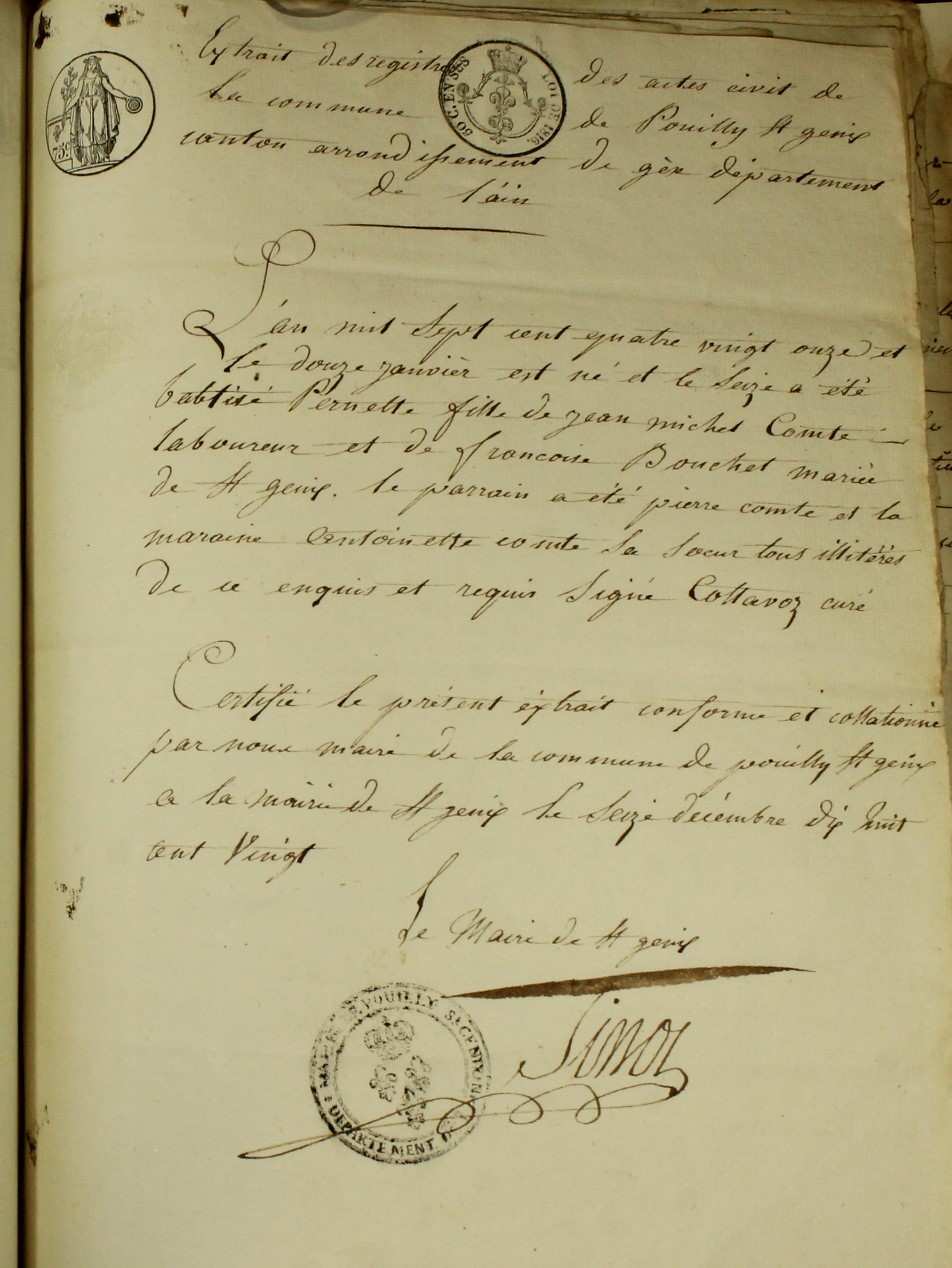 Extrait des registre des actes civit de
la commune de Pouilly St genix
canton arrondissement de gèx département
de l'áin
75c
50 C. EN SUS
LOI DE 1816.
L'an mil sept cent quatre vingt onze et
le douze janvièr est né et le seize a été
babtisé Pernette fille de jean michel Comte
laboureur et de francoise Bouchet mariée
de St genix. le parrain a été pierre comte et la
maraine antoinette comte sa soeur tous illitérés
de ce enquis et requis signé Collavoz curé
Certifié le présent éxtrait conforme et collationné
par nous maire de la commune de pouilly St genix
a la mairie de St genix le seize décembre dix huit
cent Vingt
Le Maire de St genix
MAIRIE DE POUILLY St GENIX
DEPARTEMENT. D